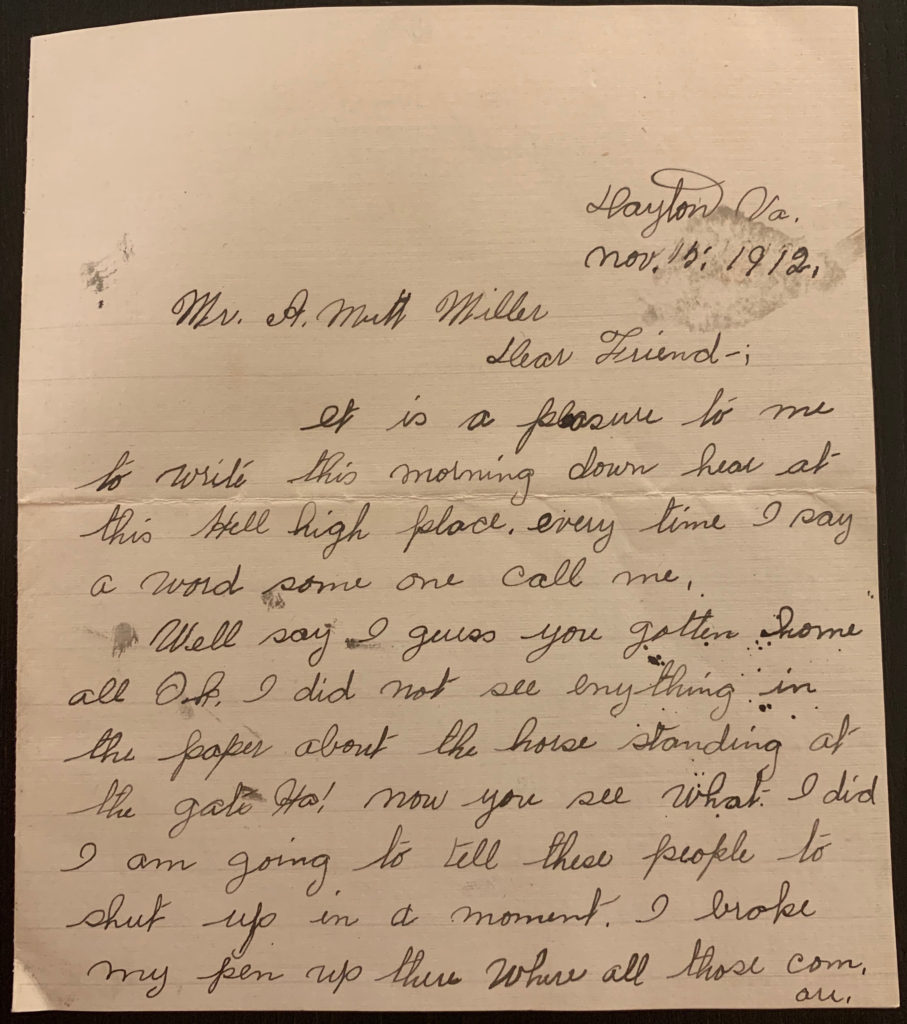 Dayton Va.
Nov. 15, 1912.
Mr. A. Miller
Dear Friend-;
It is a pleasure to me
to write this morning down hear at
this Hell high place. every time I say
a word some one call me,
Well say I guess you gotten home
all O.k. I did not see enything in
the paper about the horse standing at
the gate Ha! now you see what. I did
I am going to tell these people to
shut up in a moment. I broke
my pen up there where all those com,
are.